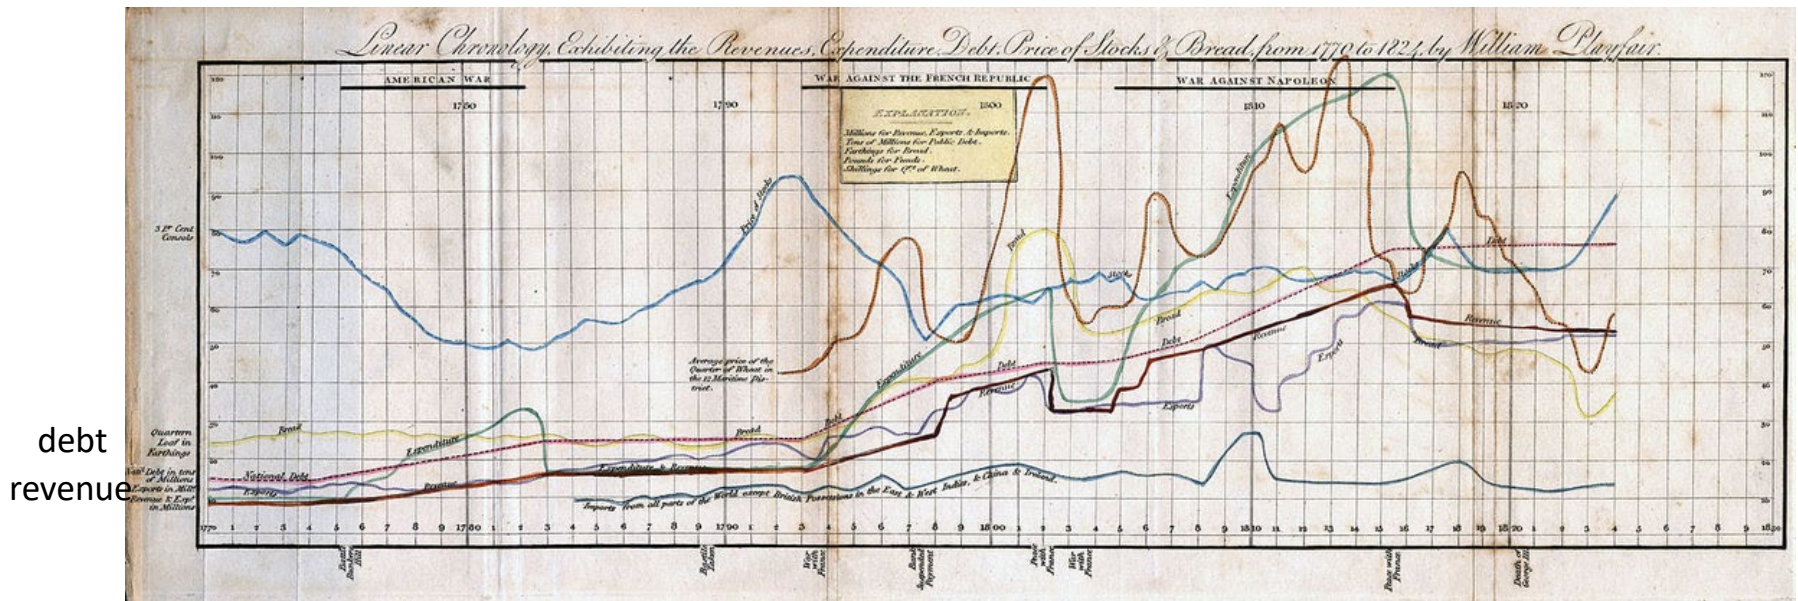 Linear Chronology, Exhibiting the Revenues, Expenditure, Debt, Price of Stocks & Bread, from 1770 to 1824, by William Playfair.
AMERICAN WAR
WAR AGAINST THE FRENCH REPUBLIC
WAR AGAINST NAPOLEON
1780
1790
1800
1810
1820
EXPLANATION.
Millions for Revenue, Exports, & Imports.
Tens of Millions for Public Debt.
Farthings for Bread.
Pounds for Funds.
Shillings for Qrs. of Wheat.
110
100
90
80
70
60
50
40
30
20
10
3 Pr. Cent
Consols
Quartern
Loaf in
Farthings
Natl. Debt in tens
of Millions
Exports in Mills.
Revenue & Expe.
in Millions
debt
revenue
Price of Stocks
Bread
Expenditure
National Debt
Exports
Revenue
Bread
Expenditure & Revenue
Average price of the
Quarter of Wheat in
the 12 Maritime Dis-
trict.
Imports from all parts of the World except British Possessions in the East & West Indies, & China & Ireland.
Debt
Expenditure
Bread
Debt
Revenue
Stocks
Bread
Debt
Exports
Expenditure
Revenue
Exports
Stocks
Debt
Revenue
Bread
1770 1 2 3 4 5 6 7 8 9 1780 1 2 3 4 5 6 7 8 9 1790 1 2 3 4 5 6 7 8 9 1800 1 2 3 4 5 6 7 8 9 1810 11 12 13 14 15 16 17 18 19 1820 1 2 3 4 5 6 7 8 9 1830
Battle
Bunkers
Hill
Bastille
taken
War
with
France
Bank
Suspended
Payment
Peace
with
France
War
with
France
Peace with
France
Death of
George III.